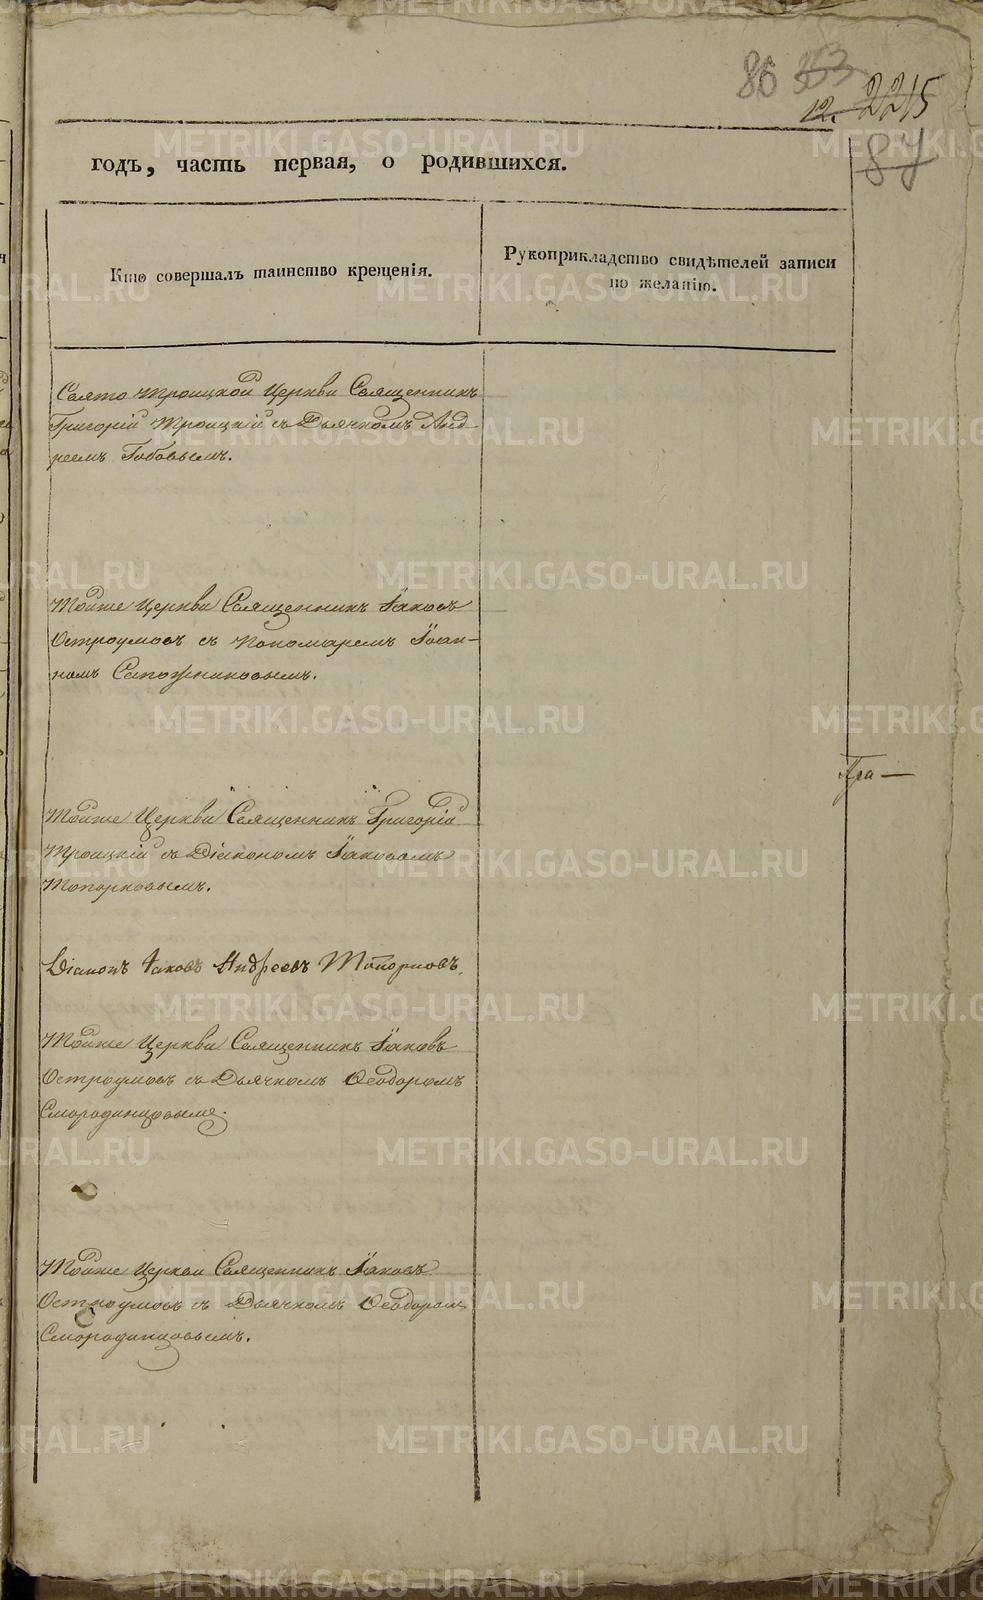 86 353
12. 2215
87
годъ, часть первая, о родившихся.
Кто совершалъ таинство крещенія.
Рукоприкладство свидѣтелей записи
по желанію.
Свято Троицкой Церкви Священникъ
Григорій Троицкій съ Дьячкомъ Анд-
реемъ Бобовымъ.
Тойже Церкви Священникъ Іаковъ
Остроумовъ съ Пономаремъ Іоан-
номъ Сапожниковымъ.
Тойже Церкви Священникъ Григорій
Троицкій съ Діакономъ Іаковомъ
Топорковымъ.
Діаконъ Іаковъ Андреевъ Топорковъ.
Тойже Церкви Священникъ Іаковъ
Остроумовъ съ Дьячкомъ Ѳеодоромъ
Смородинцовымъ.
Тойже Церкви Священникъ Іаковъ
Остроумовъ съ Дьячкомъ Ѳеодоромъ
Смородинцовымъ.
METRIKI.GASO-URAL.RU